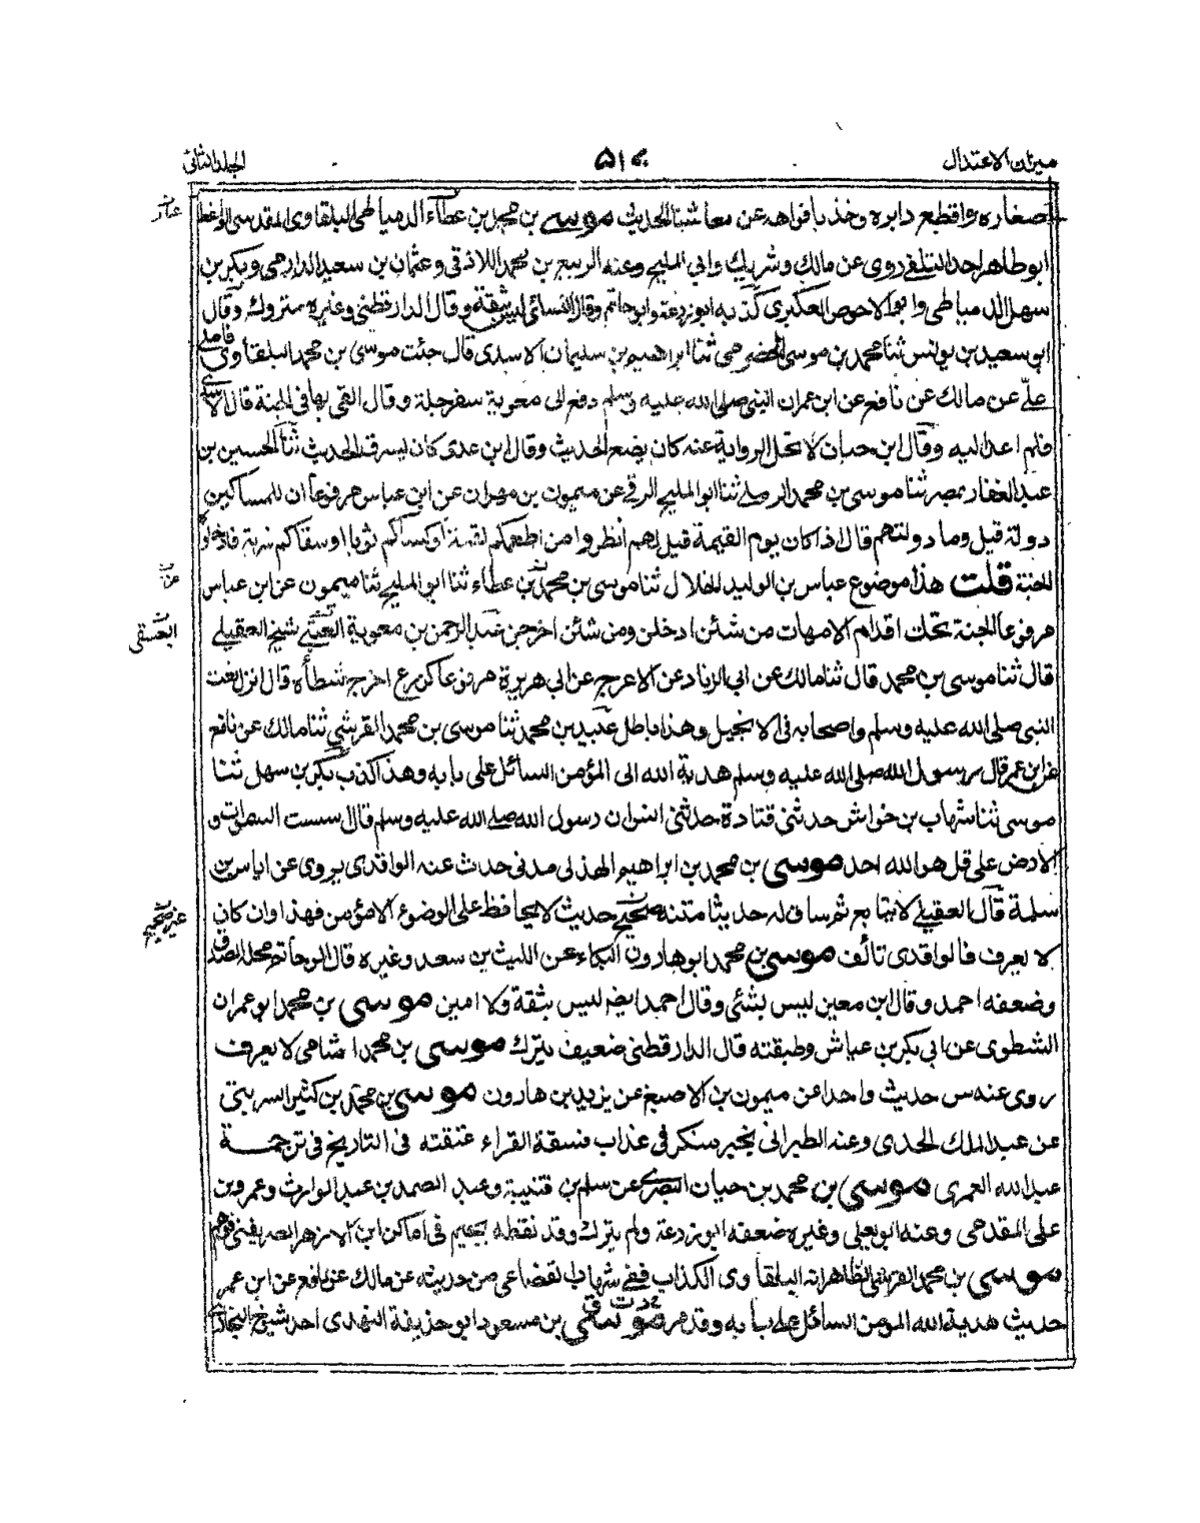 ميزان الاعتدال
الجلد الثانى
صغاره واقطع دابره وخذ بافواهه عن معاشنا الحديث موسى بن محمد بن عطاء الدمياطى البلقاوى المقدسى الواعظ
ابوطاهر احد التلفى روى عن مالك وشريك وابي المليح وعنه الربيع بن محمد اللاذقى وعثمان بن سعيد الدارمى وبكر بن
سهل الدمياطى وابو الاحوص العكبرى كذبه ابو زرعة وابو حاتم وقال النسائى ليس بثقة وقال الدارقطنى وغيره متروك وقال
ابو سعيد بن يونس ثنا محمد بن موسى الحضرمى ثنا ابراهيم بن سليمان الاسدى قال جئت موسى بن محمد البلقاوى فاملى
علىّ عن مالك عن نافع عن ابن عمر ان النبى صلى الله عليه وسلم دفع الى معوية سفرجلة وقال القنى بها فى الجنة قال الاسدى
فلم اعد اليه وقال ابن حبان لا تحل الرواية عنه كان يضع الحديث وقال ابن عدى كان يسرق الحديث ثنا الحسين بن
عبد الغفار بمصر ثنا موسى بن محمد الرملى ثنا ابو المليح الرقى عن ميمون بن مهران عن ابن عباس مرفوعا ان للمساكين
دولة قيل وما دولتهم قال اذا كان يوم القيمة قيل لهم انظروا من اطعمكم لقمة او كساكم ثوبا او سقاكم شربة فادخلوه
الجنة قلت هذا موضوع عباس بن الوليد الخلال ثنا موسى بن محمد بن عطاء ثنا ابو المليح ثنا ميمون عن ابن عباس
مرفوعا الجنة تحت اقدام الامهات من شئن ادخلن ومن شئن اخرجن عبد الرحمن بن معوية العتبى شيخ العقيلى
قال ثنا موسى بن محمد قال ثنا مالك عن ابى الزناد عن الاعرج عن ابى هريرة مرفوعا كزرع اخرج شطأه قال انزل نعت
النبى صلى الله عليه وسلم واصحابه فى الانجيل وهذا باطل عبيد بن محمد ثنا موسى بن محمد القرشى ثنا مالك عن نافع
عن ابن عمر قال رسول الله صلى الله عليه وسلم هدية الله الى المؤمن السائل على بابه وهذا كذب بكر بن سهل ثنا
موسى ثنا شهاب بن خراش حدثنى قتادة حدثنى انس ان رسول الله صلى الله عليه وسلم قال سست السموات و
الارض على قل هو الله احد موسى بن محمد بن ابراهيم الهذلى مدنى حدث عنه الواقدى يروى عن اياس بن
سلمة قال العقيلى لا يتابع ثم ساق له حديثا متنه صحيح حديث لا يحافظ على الوضوء الا مؤمن فهذا وان كان
لا يعرف فالواقدى تالف موسى بن محمد ابو هارون البكاء عن الليث بن سعد وغيره قال ابو حاتم محله الصدق
وضعفه احمد وقال ابن معين ليس بشئى وقال احمد ايضا ليس بثقة ولا امين موسى بن محمد ابو عمران
الشطوى عن ابى بكر بن عياش وطبقته قال الدارقطنى ضعيف يترك موسى بن محمد الشامى لا يعرف
روى عنه س حديث واحدا عن ميمون بن الاصبغ عن يزيد بن هارون موسى بن محمد بن كثير السرينى
عن عبد الملك الجدى وعنه الطبرانى بخبر منكر فى عذاب فسقة القراء علقته فى التاريخ فى ترجمة
عبد الله العمرى موسى بن محمد بن حيان البصرى عن سلم بن قتيبة وعبد الصمد بن عبد الوارث وعمرو بن
على المقدمى وعنه ابو يعلى وغيره ضعفه ابو زرعة ولم يترك وقد نقطه بجيم فى اماكن ابن الازهر الصريفينى فوهم
موسى بن محمد القرشى الظاهر انه البلقاوى الكذاب ففى شهاب القضاعى من حديثه عن مالك عن نافع عن ابن عمر
حديث هدية الله المؤمن السائل على بابه وقد مر موسى بن مسعود ابو حذيفة النهدى احد شيوخ البخارى